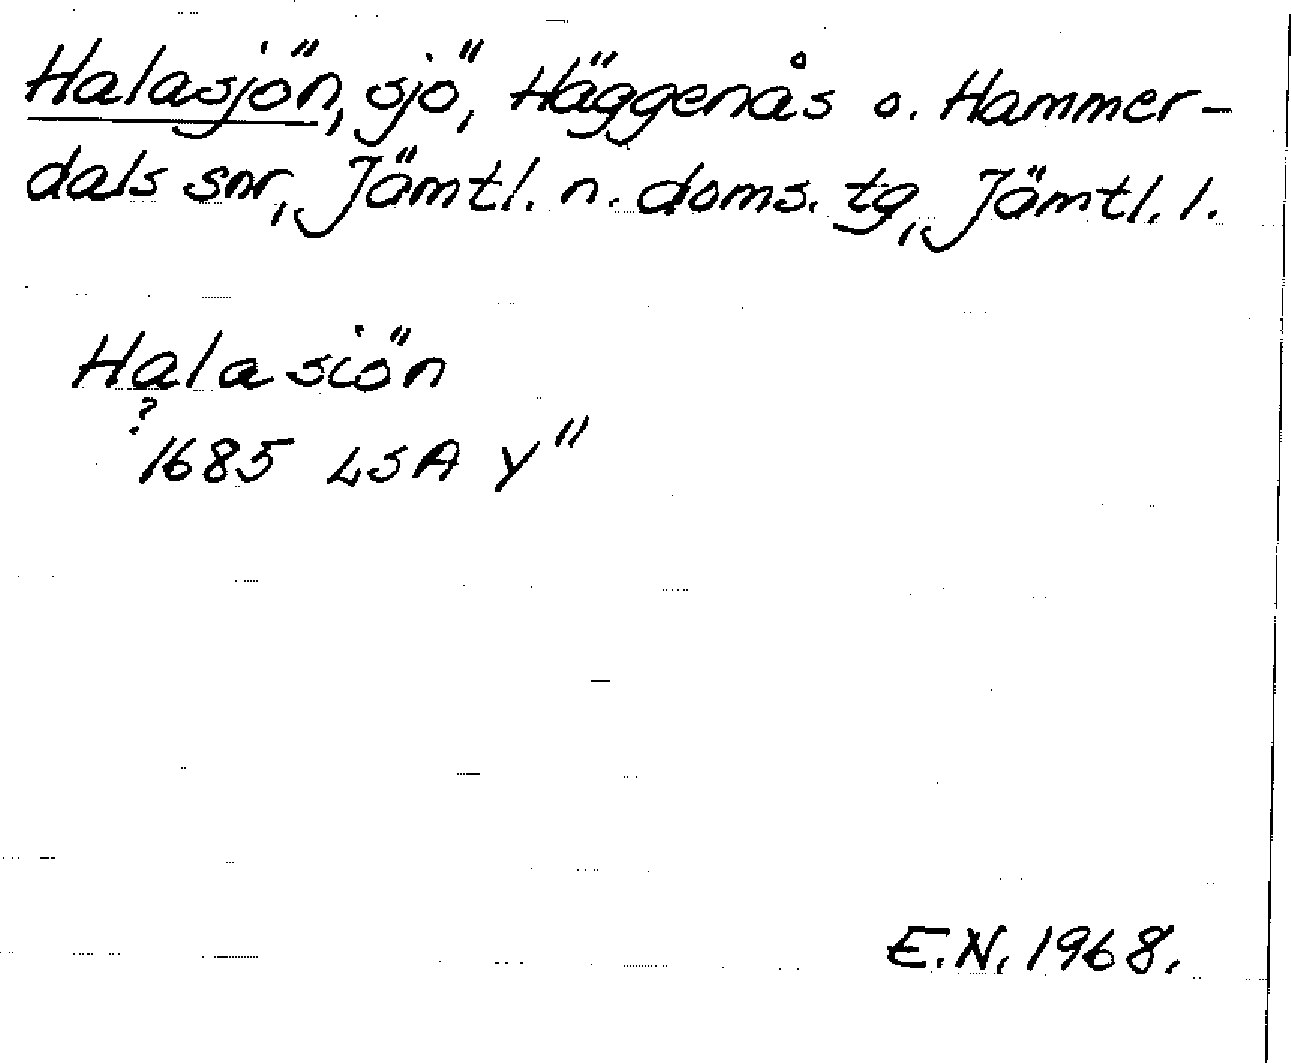 Halasjön, sjö, Häggenås o. Hammer-
dals snr, Jämtl. n. doms. tg, Jämtl. l.
Halasiön
?
1685 LSA Y"
E.N. 1968.